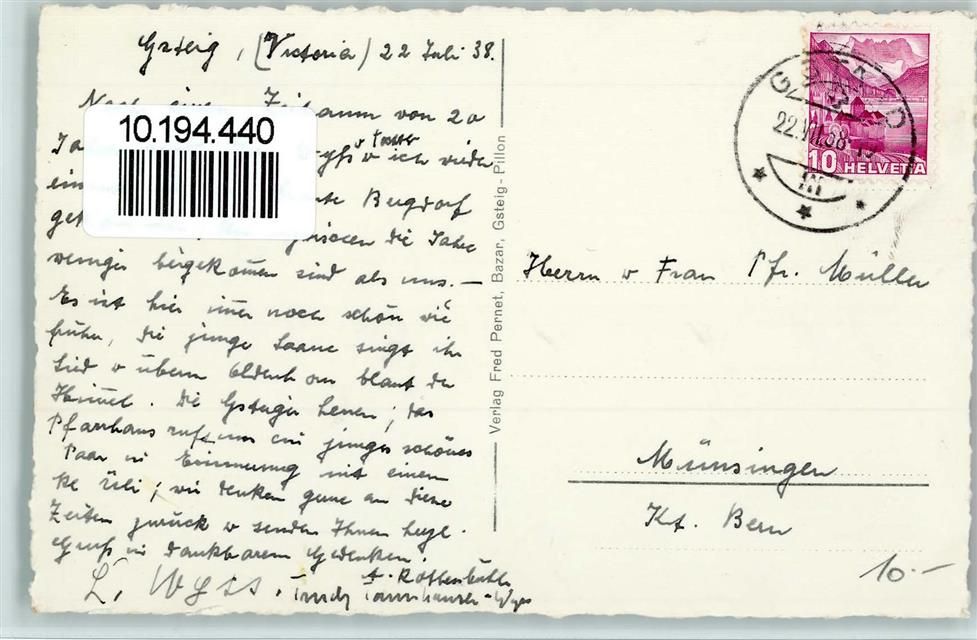 Gsteig, (Victoria) 22 Juli 38.
Nach von 20
Ja u Tochter
u ich wieder
ein Bergdorf
ge die Jahre
weniger sind als uns. —
Es ist hier immer noch schön wie
früher, die junge Saane singt ihr
Lied u überm Oldenhorn blaut der
Himmel. Die Gsteiger Leuen; das
Pfarrhaus ruft uns ein junges schönes
Paar in Erinnerung mit einem
Üeli; wir denken gerne an diese
Zeiten zurück u senden Ihnen hrzl.
Gruss in dankbarem Gedenken.
L. Wyss.
Trudy Tannhauser-Wyss
10.194.440
Verlag Fred Pernet, Bazar, Gsteig - Pillon
GSTAAD
22.VII.38
10 HELVETIA
Herrn u Frau Pfr. Müller
Münsingen
Kt. Bern
10.—